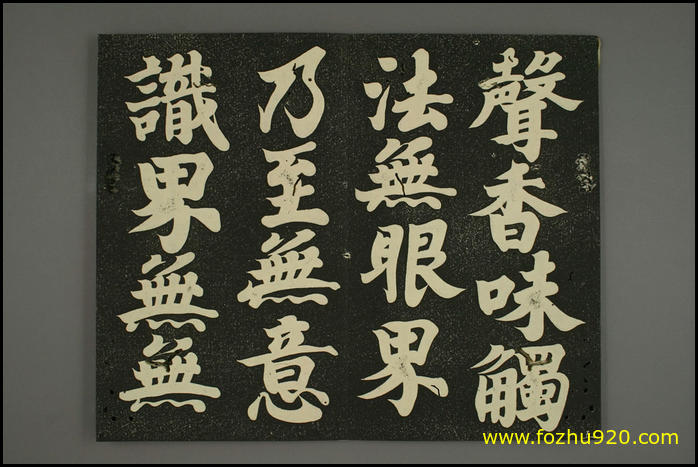 聲香味觸
法無眼界
乃至無意
識界無無
www.fozhu920.com